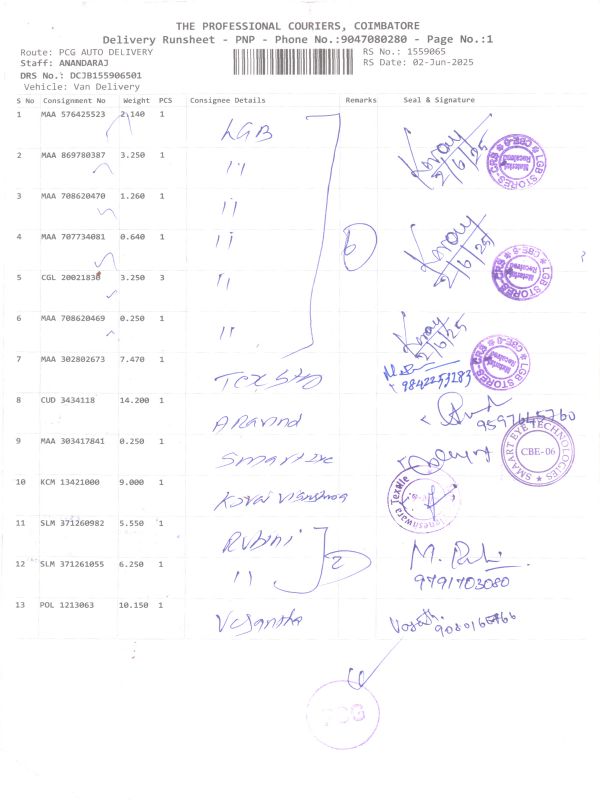 THE PROFESSIONAL COURIERS, COIMBATORE
Delivery Runsheet - PNP - Phone No.:9047080280 - Page No.:1
Route: PCG AUTO DELIVERY RS No.: 1559065
Staff: ANANDARAJ RS Date: 02-Jun-2025
DRS No.: DCJB155906501
Vehicle: Van Delivery
S No Consignment No Weight PCS Consignee Details Remarks Seal & Signature
1 MAA 576425523 2.140 1 LGB 2/6/25
LGB STORES-CRS CBE-6 Material Received
2 MAA 869780387 3.250 1 "
3 MAA 708620470 1.260 1 "
4 MAA 707734081 0.640 1 " 6 2/6/25
LGB STORES-CRS CBE-6 Material Received
5 CGL 20021830 3.250 3 "
6 MAA 708620469 0.250 1 " 2/6/25
LGB STORES-CRS CBE-6 Material Received
7 MAA 302802673 7.470 1 9842253283
8 CUD 3434118 14.200 1 Aravind 9597645760
9 MAA 303417841 0.250 1 Smart eye
SMART EYE TECHNOLOGIES CBE-06
10 KCM 13421000 9.000 1 Kovai
Textile
11 SLM 371260982 5.550 1 Rubini
12 SLM 371261055 6.250 1 " 2 M.
9791703080
13 POL 1213063 10.150 1
PCG